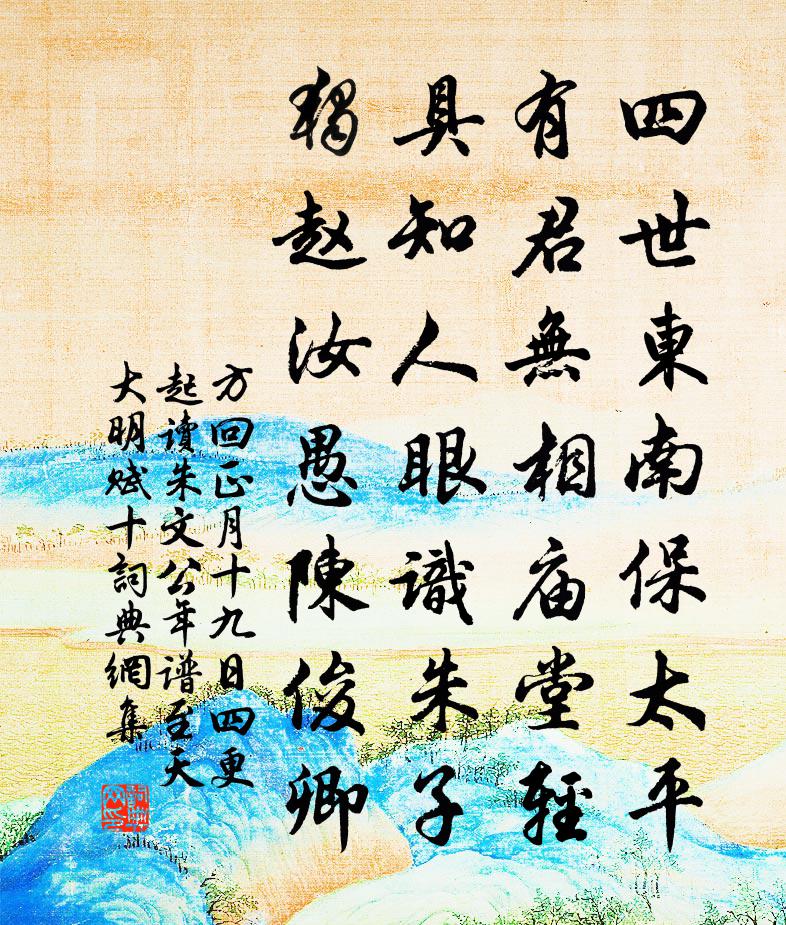 四世東南保太平
有君無相庙堂輕
具知人眼識朱子
獨赵汝愚陳俊卿
方回正月十九日四更
起讀朱文公年谱至天
大明赋十詞典網集